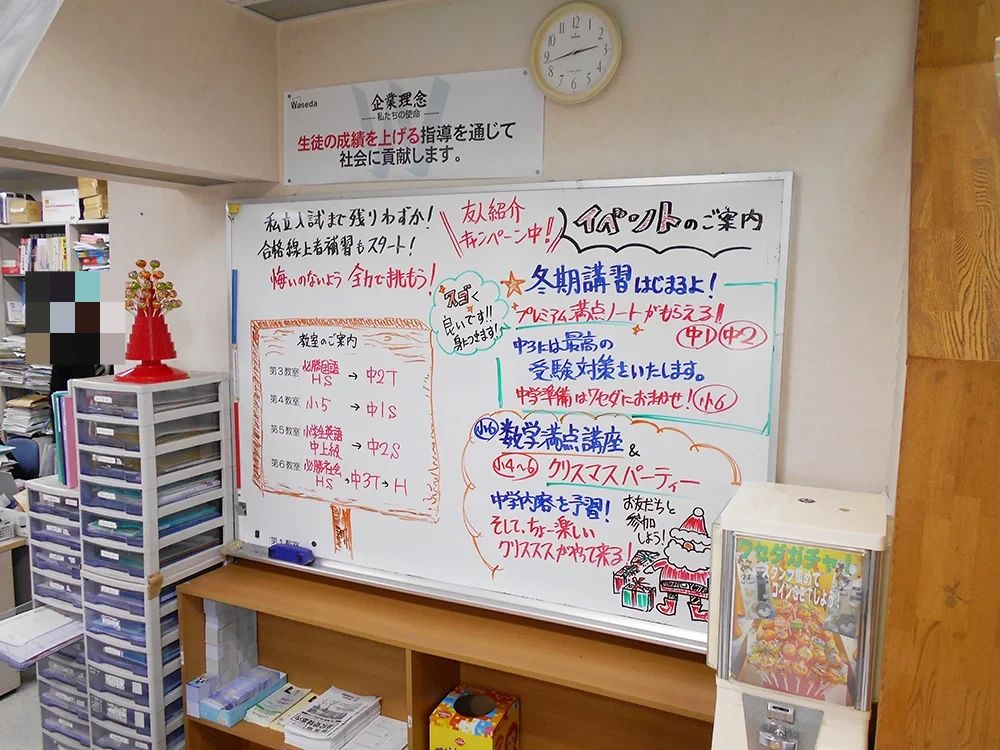 Waseda
企業理念
私たちの使命
生徒の成績を上げる指導を通じて
社会に貢献します。
12
1
2
3
4
5
6
7
8
9
10
11
私立入試まで残りわずか！
合格線上者補習もスタート！
悔いのないよう全力で挑もう！
友人紹介
キャンペーン中！
イベントのご案内
スゴく
良いです!!
身につきます！
冬期講習はじまるよ！
プレミアム満点ノートがもらえる！
中1 中2
中3には最高の
受験対策をいたします。
中学準備はワセダにおまかせ！小6
教室のご案内
第3教室 必勝国語
HS → 中2T
第4教室 小5 → 中1S
第5教室 小学生英語
中上級 → 中2S
第6教室 必勝社会
HS → 中3T → H
第1教室
小6 数学満点講座 &
小4～6 クリスマスパーティー
中学内容を予習！
そして、ちょー楽しい
クリスマスがやって来る！
お友だちと
参加
しよう！
ワセダガチャ！
スタンプ集めて
コインをGETしよう！